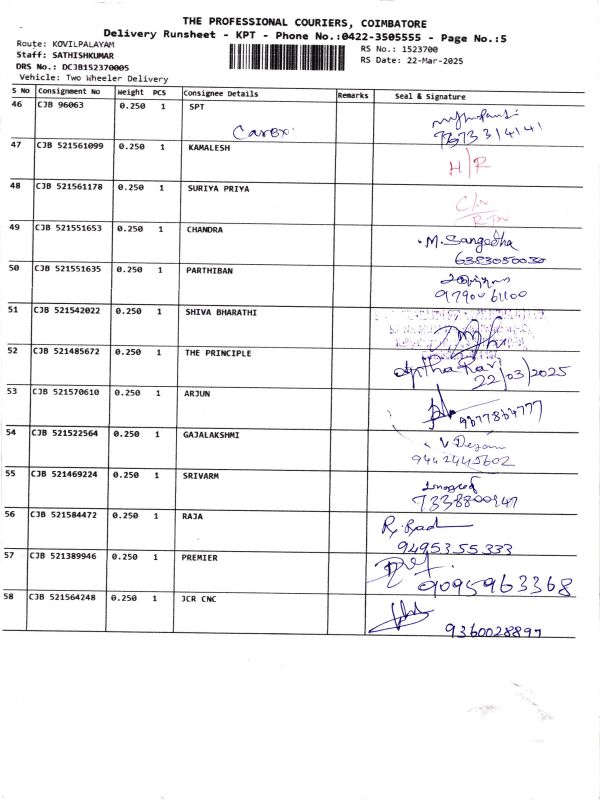 THE PROFESSIONAL COURIERS, COIMBATORE
Delivery Runsheet - KPT - Phone No.:0422-3505555 - Page No.:5
Route: KOVILPALAYAM
RS No.: 1523700
Staff: SATHISHKUMAR
RS Date: 22-Mar-2025
DRS No.: DCJB152370005
Vehicle: Two Wheeler Delivery
S No Consignment No Weight PCS Consignee Details Remarks Seal & Signature
46 CJB 96063 0.250 1 SPT
47 CJB 521561099 0.250 1 KAMALESH H/R
48 CJB 521561178 0.250 1 SURIYA PRIYA
49 CJB 521551653 0.250 1 CHANDRA M. Sangeetha
6383050030
50 CJB 521551635 0.250 1 PARTHIBAN
9790061100
51 CJB 521542022 0.250 1 SHIVA BHARATHI
52 CJB 521485672 0.250 1 THE PRINCIPLE
22/03/2025
53 CJB 521570610 0.250 1 ARJUN
54 CJB 521522564 0.250 1 GAJALAKSHMI
9442445602
55 CJB 521469224 0.250 1 SRIVARM
7338800947
56 CJB 521584472 0.250 1 RAJA
9495355333
57 CJB 521389946 0.250 1 PREMIER
9095963368
58 CJB 521564248 0.250 1 JCR CNC
9360028897